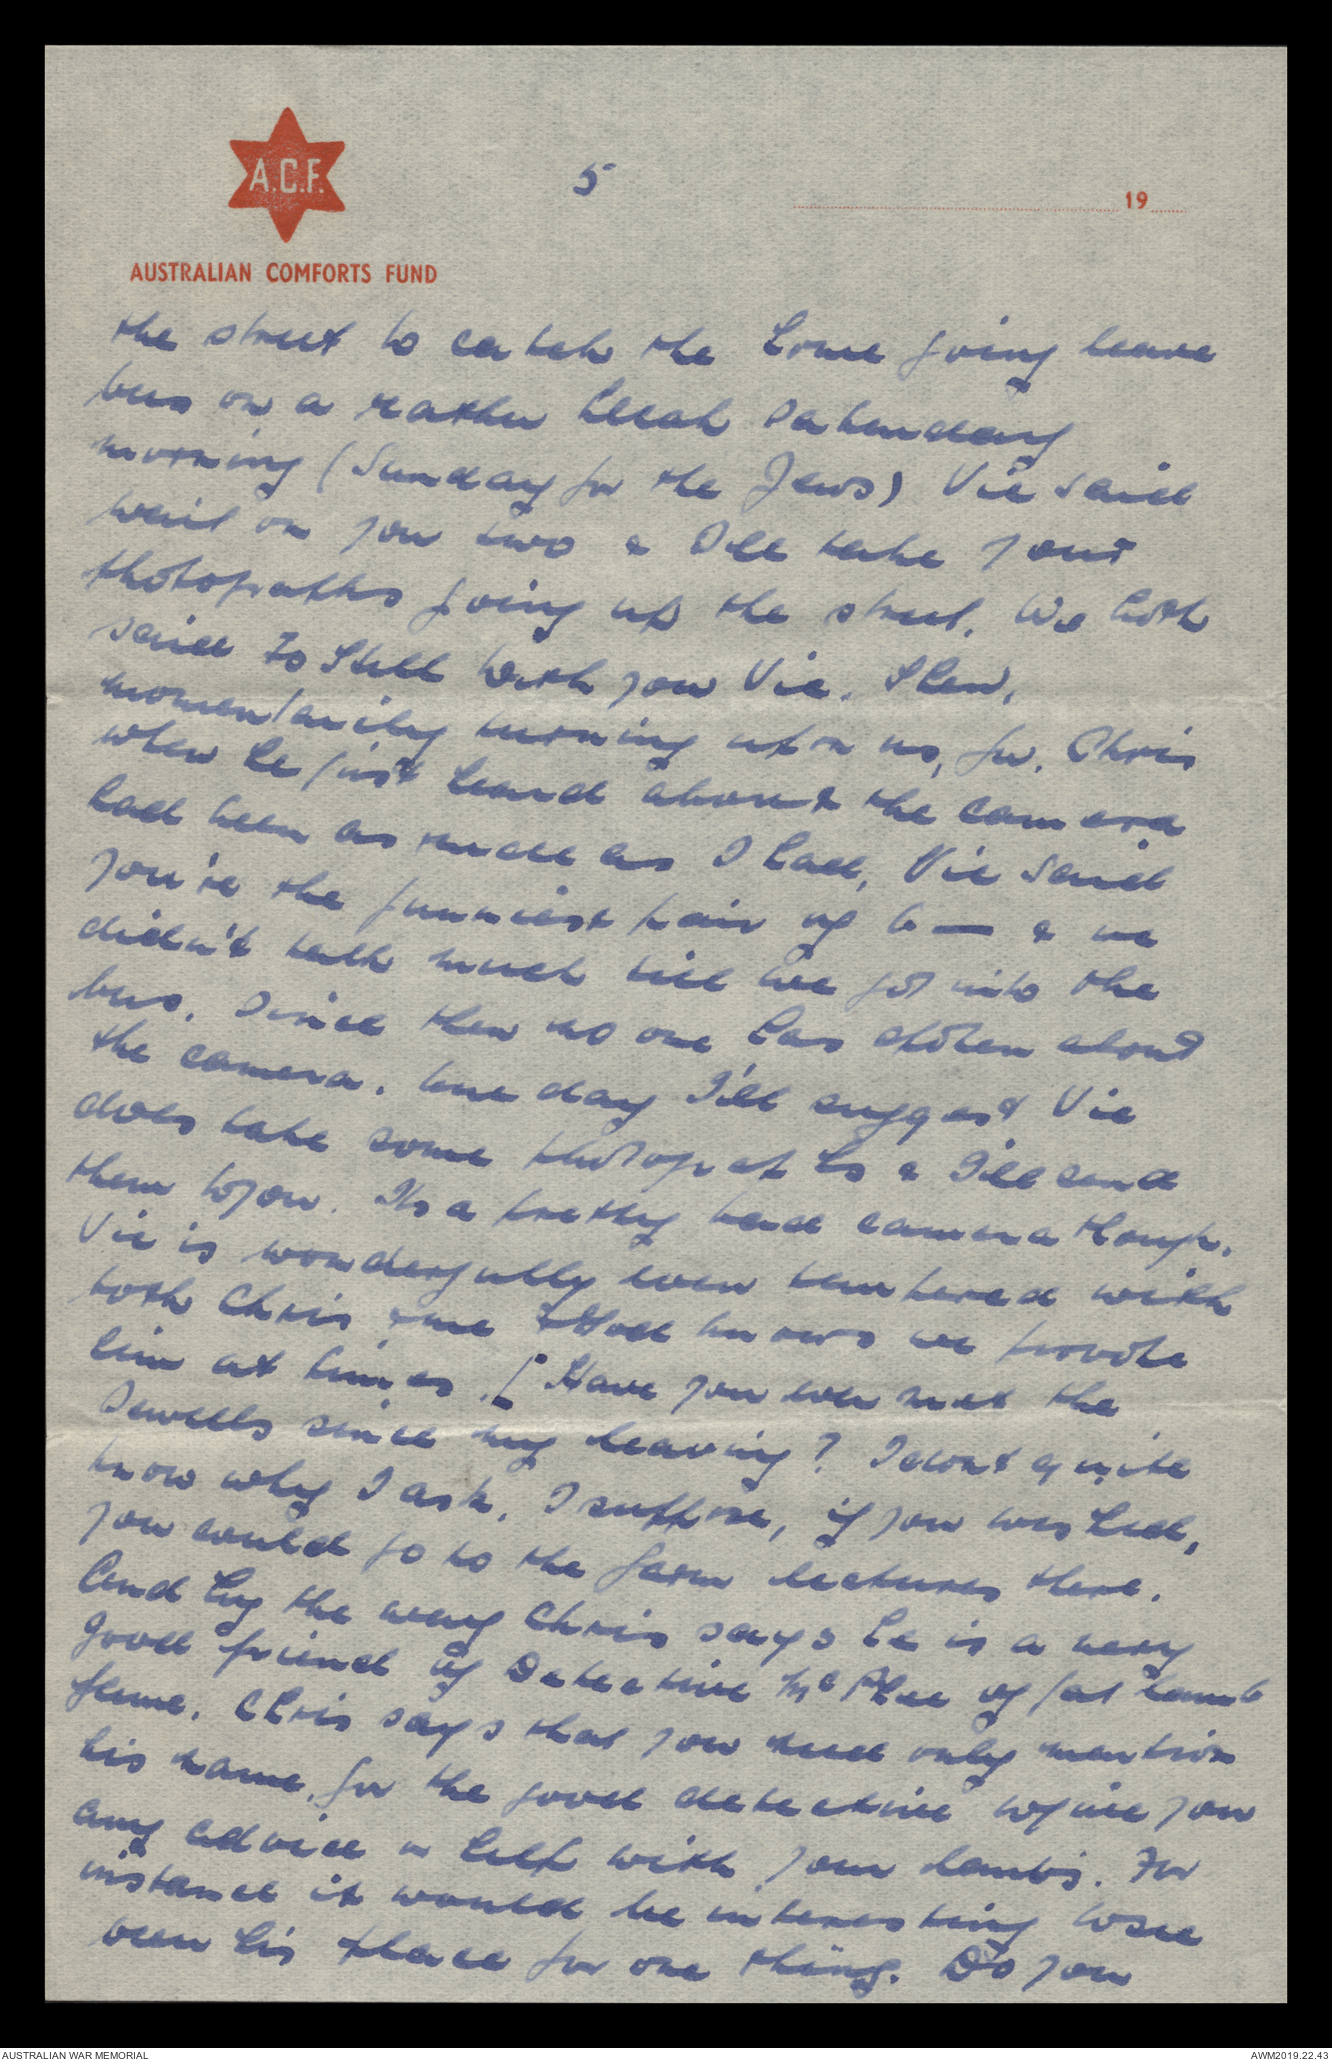 A.C.F.
5
19
AUSTRALIAN COMFORTS FUND
the street to catch the home going leave
bus on a rather bleak Saturday
morning (Sunday for the Jews) Vic said
wait on you two & I'll take your
photopraphs going up the street. We both
said To Hell with you Vic. Then,
momentarily turning upon us, for, Chris
when he first heard about the camera
had been as rude as I had, Vic said
you're the funniest pair of b— & we
didn't talk much till we got into the
bus. Since then no one has spoken about
the camera. One day I'll suggest Vic
does take some photographs & I'll send
them to you. Its a pretty bad camera though.
Vic is wonderfully even tempered with
both Chris & me & God knows we provoke
him at times. [Have you ever met the
Sewells since my leaving? I dont quite
know why I ask. I suppose, if you wished,
you could go to the farm lectures there.
And by the way Chris says he is a very
good friend of Detective McPhee of fat lamb
fame. Chris says that you need only mention
his name, for the good detective to give you
any advice or help with your lambs. For
instance it would be interesting to see
over his place for one thing. Do you
AUSTRALIAN WAR MEMORIAL
AWM2019.22.43